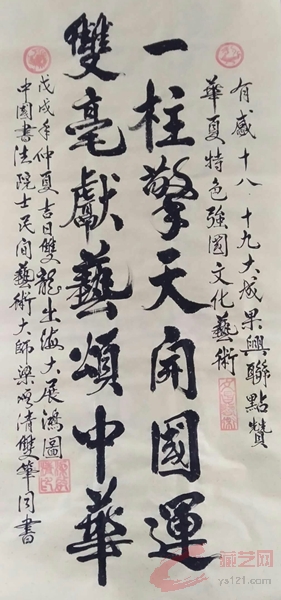 有感十八十九大成果興聯點贊
華夏特色強國文化藝術
一柱擎天開國運
雙毫獻藝頌中華
戊戌年仲夏吉日雙龍出海大展鴻圖
中国書法院士民间藝術大師梁頌清雙筆同書
藏艺网
ys121.com